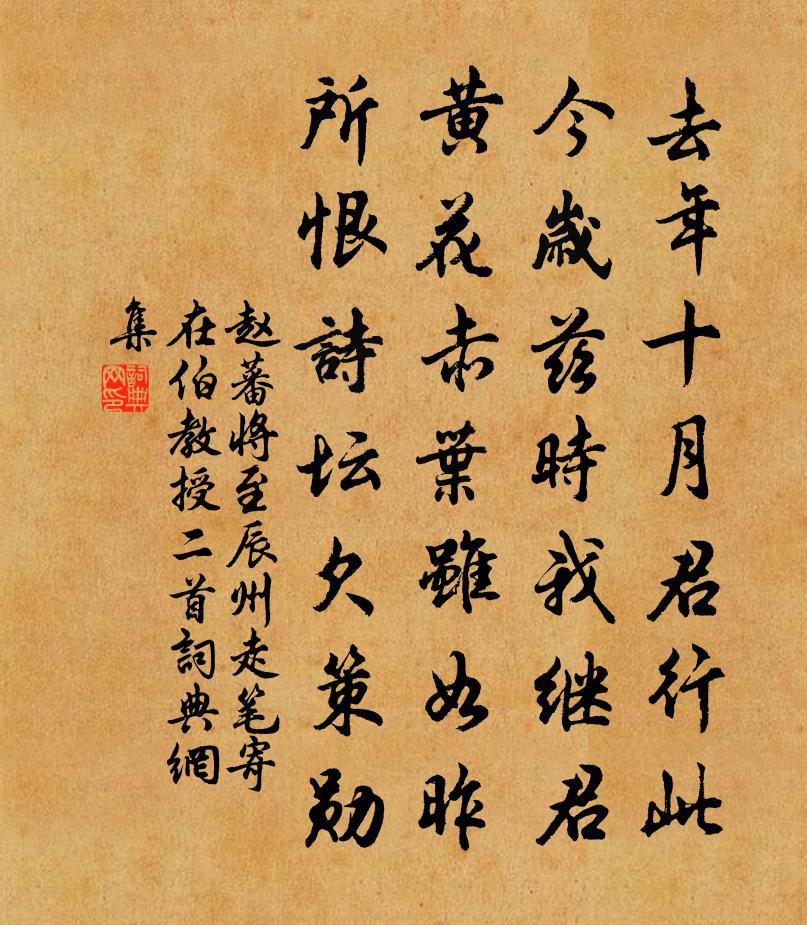 去年十月君行此
今歲茲時我继君
黄花赤葉雖如昨
所恨詩坛欠策勋
赵蕃將至辰州走笔寄
在伯教授二首詞典網
集
詞典网印